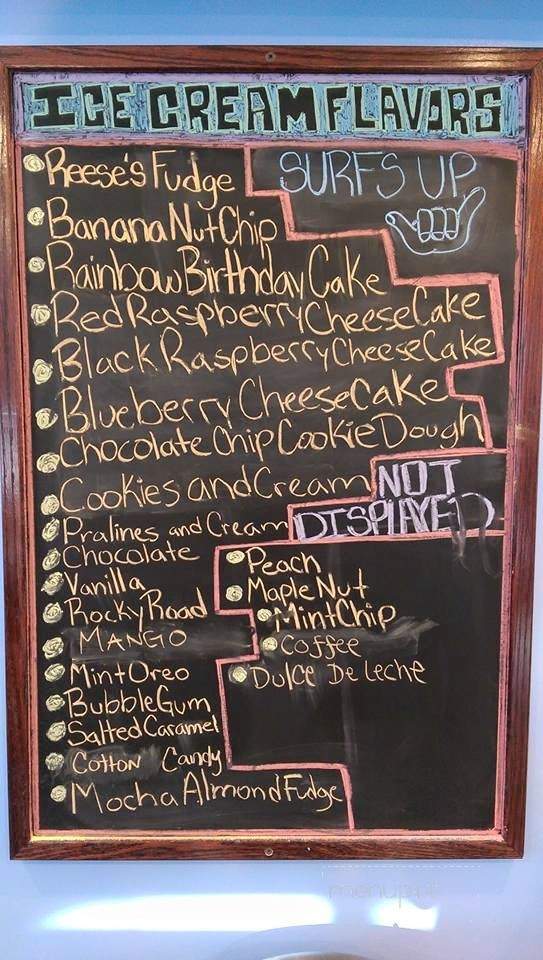 ICE CREAM FLAVORS
SURFS UP
Reese's Fudge
Banana Nut Chip
Rainbow Birthday Cake
Red Raspberry Cheese Cake
Black Raspberry Cheese Cake
Blueberry Cheese Cake
Chocolate Chip Cookie Dough
Cookies and Cream
Pralines and Cream
Chocolate
Vanilla
Rocky Road
MANGO
Mint Oreo
Bubble Gum
Salted Caramel
Cotton Candy
Mocha Almond Fudge
NOT
DISPLAYED
Peach
Maple Nut
Mint Chip
Coffee
Dulce De Leche